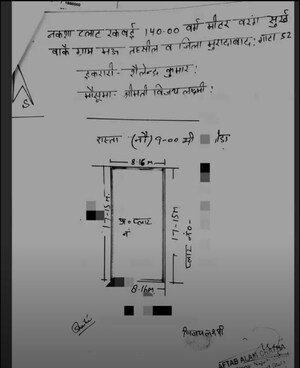 नक्शा प्लाट रकबई 140.00 वर्ग मीटर वरंग सुर्ख
वाके ग्राम मऊ तहसील व जिला मुरादाबाद: गाटा 52
इकरारी- शैलेन्द्र कुमार:
मौसूमा- श्रीमती विजय लक्ष्मी:
रास्ता (नौ) 9-00 मी चौड़ा
8.16m
17-15m
अ=प्लाट
नं
17-15m
प्लाट नं०-
8.16m
विजय लक्ष्मी
AFTAB ALAM